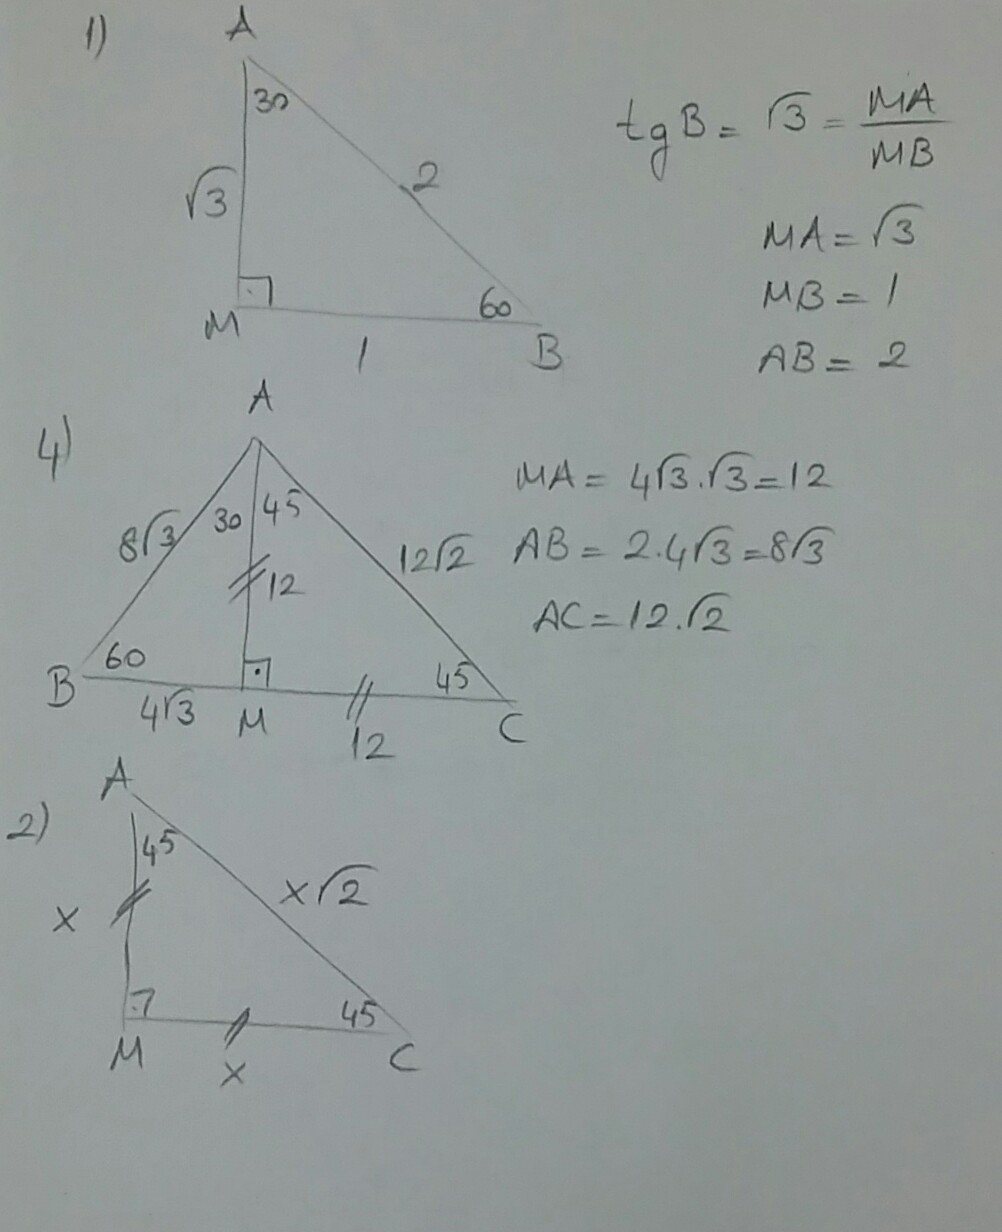 1)
A
30
√3
2
60
M
1
B
tgB = √3 = MA/MB
MA = √3
MB = 1
AB = 2
4)
A
8√3
30
45
12
12√2
60
45
B
4√3
M
12
C
MA = 4√3.√3 = 12
AB = 2.4√3 = 8√3
AC = 12.√2
2)
A
45
x
x√2
45
M
x
C